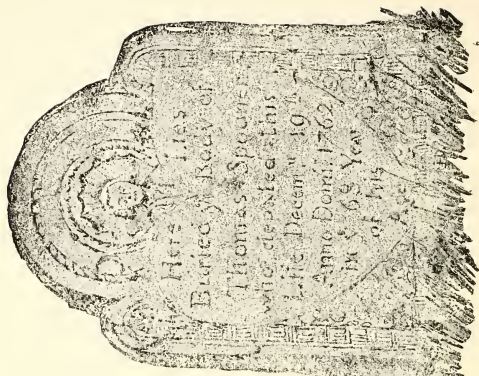 Here Lies
Buried yᵉ Body of
Thomas Spooner
who departed this
Life Decemʳ 19ᵗʰ
Anno Domⁱ 1762
in yᵉ 69 Year
of his